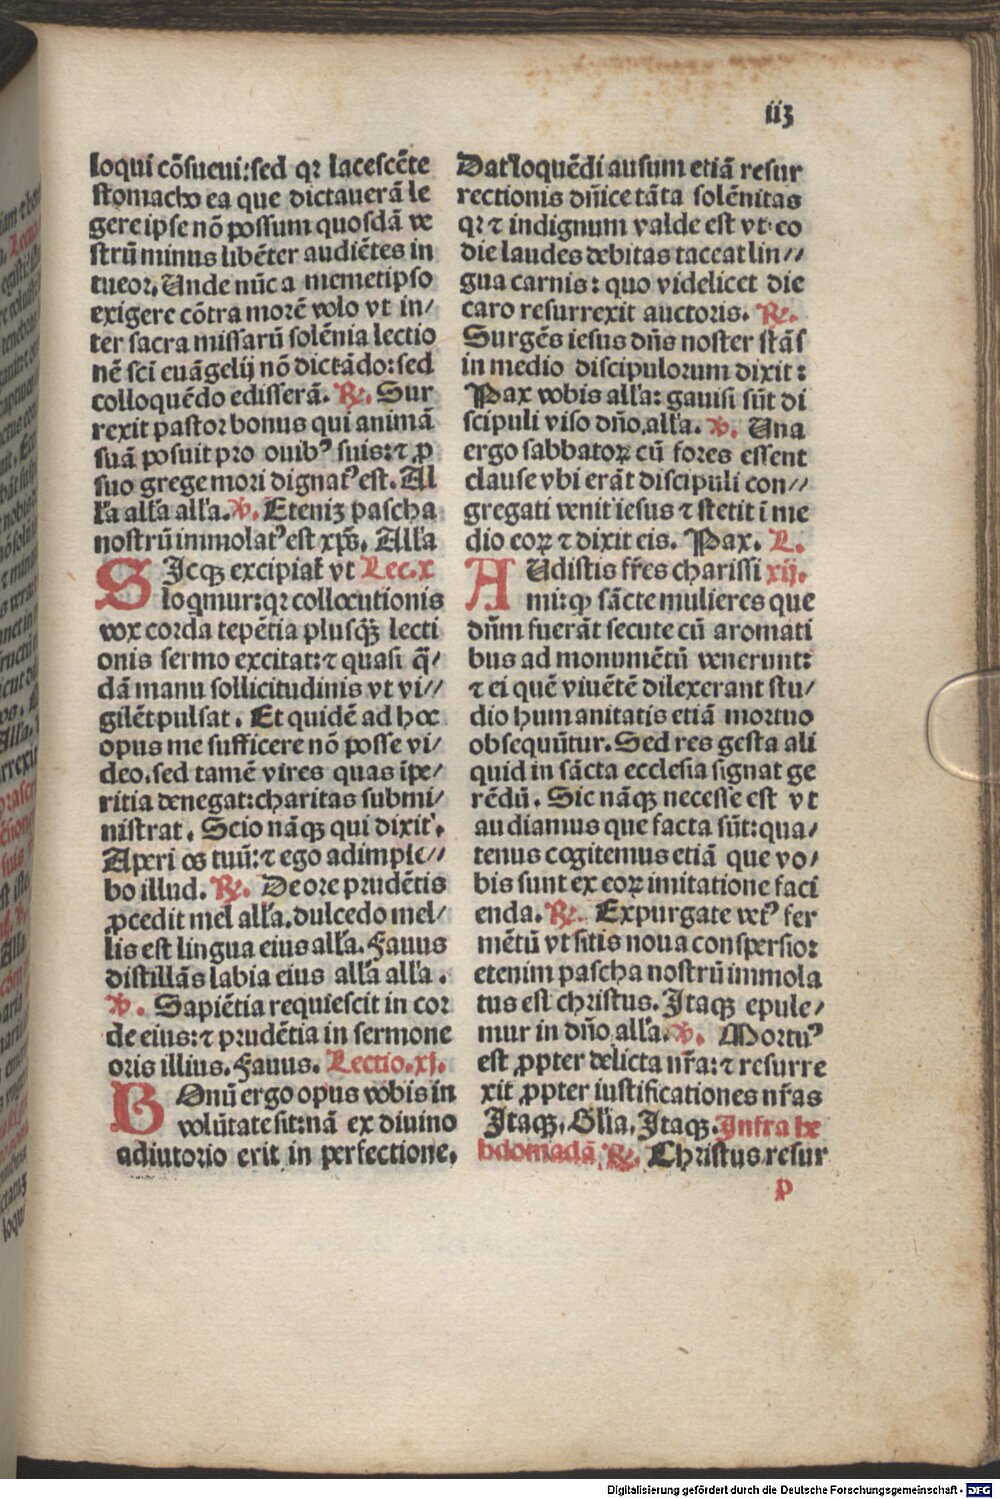 iiȝ
loqui cōsueui: sed qꝛ lacescēte
stomacho ea que dictauerā le
gere ipse nō possum quosdā ve
strū minus libēter audiētes in
tueor. Unde nūc a memetipso
exigere cōtra morē volo vt in/
ter sacra missarū solēnia lectio
nē sci euāgelij nō dictādo: sed
colloquēdo edisserā. ℟. Sur
rexit pastor bonus qui animā
suā posuit pro ouibꝰ suis: ⁊ ꝓ
suo grege mori dignatꝰ est. Al
l'a all'a all'a. ℣. Eteniȝ pascha
nostrū immolatꝰ est xp̄s. All'a
SIcqȝ excipiat' vt Lec.x
loqmur: qꝛ collocutionis
vox corda tepētia plusqȝ̄ lecti
onis sermo excitat: ⁊ quasi q̄/
dā manu sollicitudinis vt vi//
gilēt pulsat. Et quidē ad hoc
opus me sufficere nō posse vi/
deo. sed tamē vires quas īpe/
ritia denegat: charitas submi/
nistrat. Scio nāqȝ qui dixit'.
Aperi os tuū: ⁊ ego adimple//
bo illud. ℟. De ore prudētis
ꝓcedit mel all'a. dulcedo mel/
lis est lingua eius all'a. Fauus
distillās labia eius all'a all'a.
℣. Sapiētia requiescit in cor
de eius: ⁊ prudētia in sermone
oris illius. Fauus. Lectio.xj.
BOnū ergo opus vobis in
volūtate sit: nā ex diuino
adiutorio erit in perfectione.
Dat loquēdi ausum etiā resur
rectionis dn̄ice tāta solēnitas
qꝛ ⁊ indignum valde est vt eo
die laudes debitas taceat lin//
gua carnis: quo videlicet die
caro resurrexit auctoris. ℟.
Surgēs iesus dn̄s noster stās
in medio discipulorum dixit:
Pax vobis all'a: gauisi sūt di
scipuli viso dn̄o, all'a. ℣. Una
ergo sabbatoꝝ cū fores essent
clause vbi erāt discipuli con//
gregati venit iesus ⁊ stetit ī me
dio eoꝝ ⁊ dixit eis. Pax. L.
AUdistis fr̄es charissi xij.
mi: qꝫ sācte mulieres que
dn̄m fuerāt secute cū aromati
bus ad monumētū venerunt:
⁊ ei quē viuētē dilexerant stu/
dio humanitatis etiā mortuo
obsequūtur. Sed res gesta ali
quid in sācta ecclesia signat ge
rēdū. Sic nāqȝ necesse est vt
audiamus que facta sūt: qua/
tenus cogitemus etiā que vo/
bis sunt ex eoꝝ imitatione faci
enda. ℟. Expurgate vetꝰ fer
mētū vt sitis noua conspersio:
etenim pascha nostrū immola
tus est christus. Itaqȝ epule/
mur in dn̄o all'a. ℣. Mortuꝰ
est ꝓpter delicta nr̄a: ⁊ resurre
xit ꝓpter iustificationes nr̄as
Itaqȝ. Gl'ia. Itaqȝ. Infra he
bdomadā. ℟. Christus resur
p
Digitalisierung gefördert durch die Deutsche Forschungsgemeinschaft - DFG